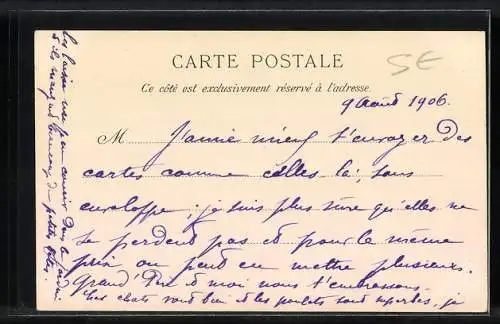 CARTE POSTALE
SE
Ce côté est exclusivement réservé à l'adresse.
9 Août 1906.
M J'aime mieux t'envoyer des
cartes comme celles là, sous
enveloppe; je suis plus sûre qu'elles ne
se perdent pas et pour le même
prix on peut en mettre plusieurs.
Grand' Père et moi nous t'embrassons.
Les chats vont bien et les poulets sont superbes, je
les laisse un peu courir dans le jardin
et ils mangent beaucoup de petites bêtes.